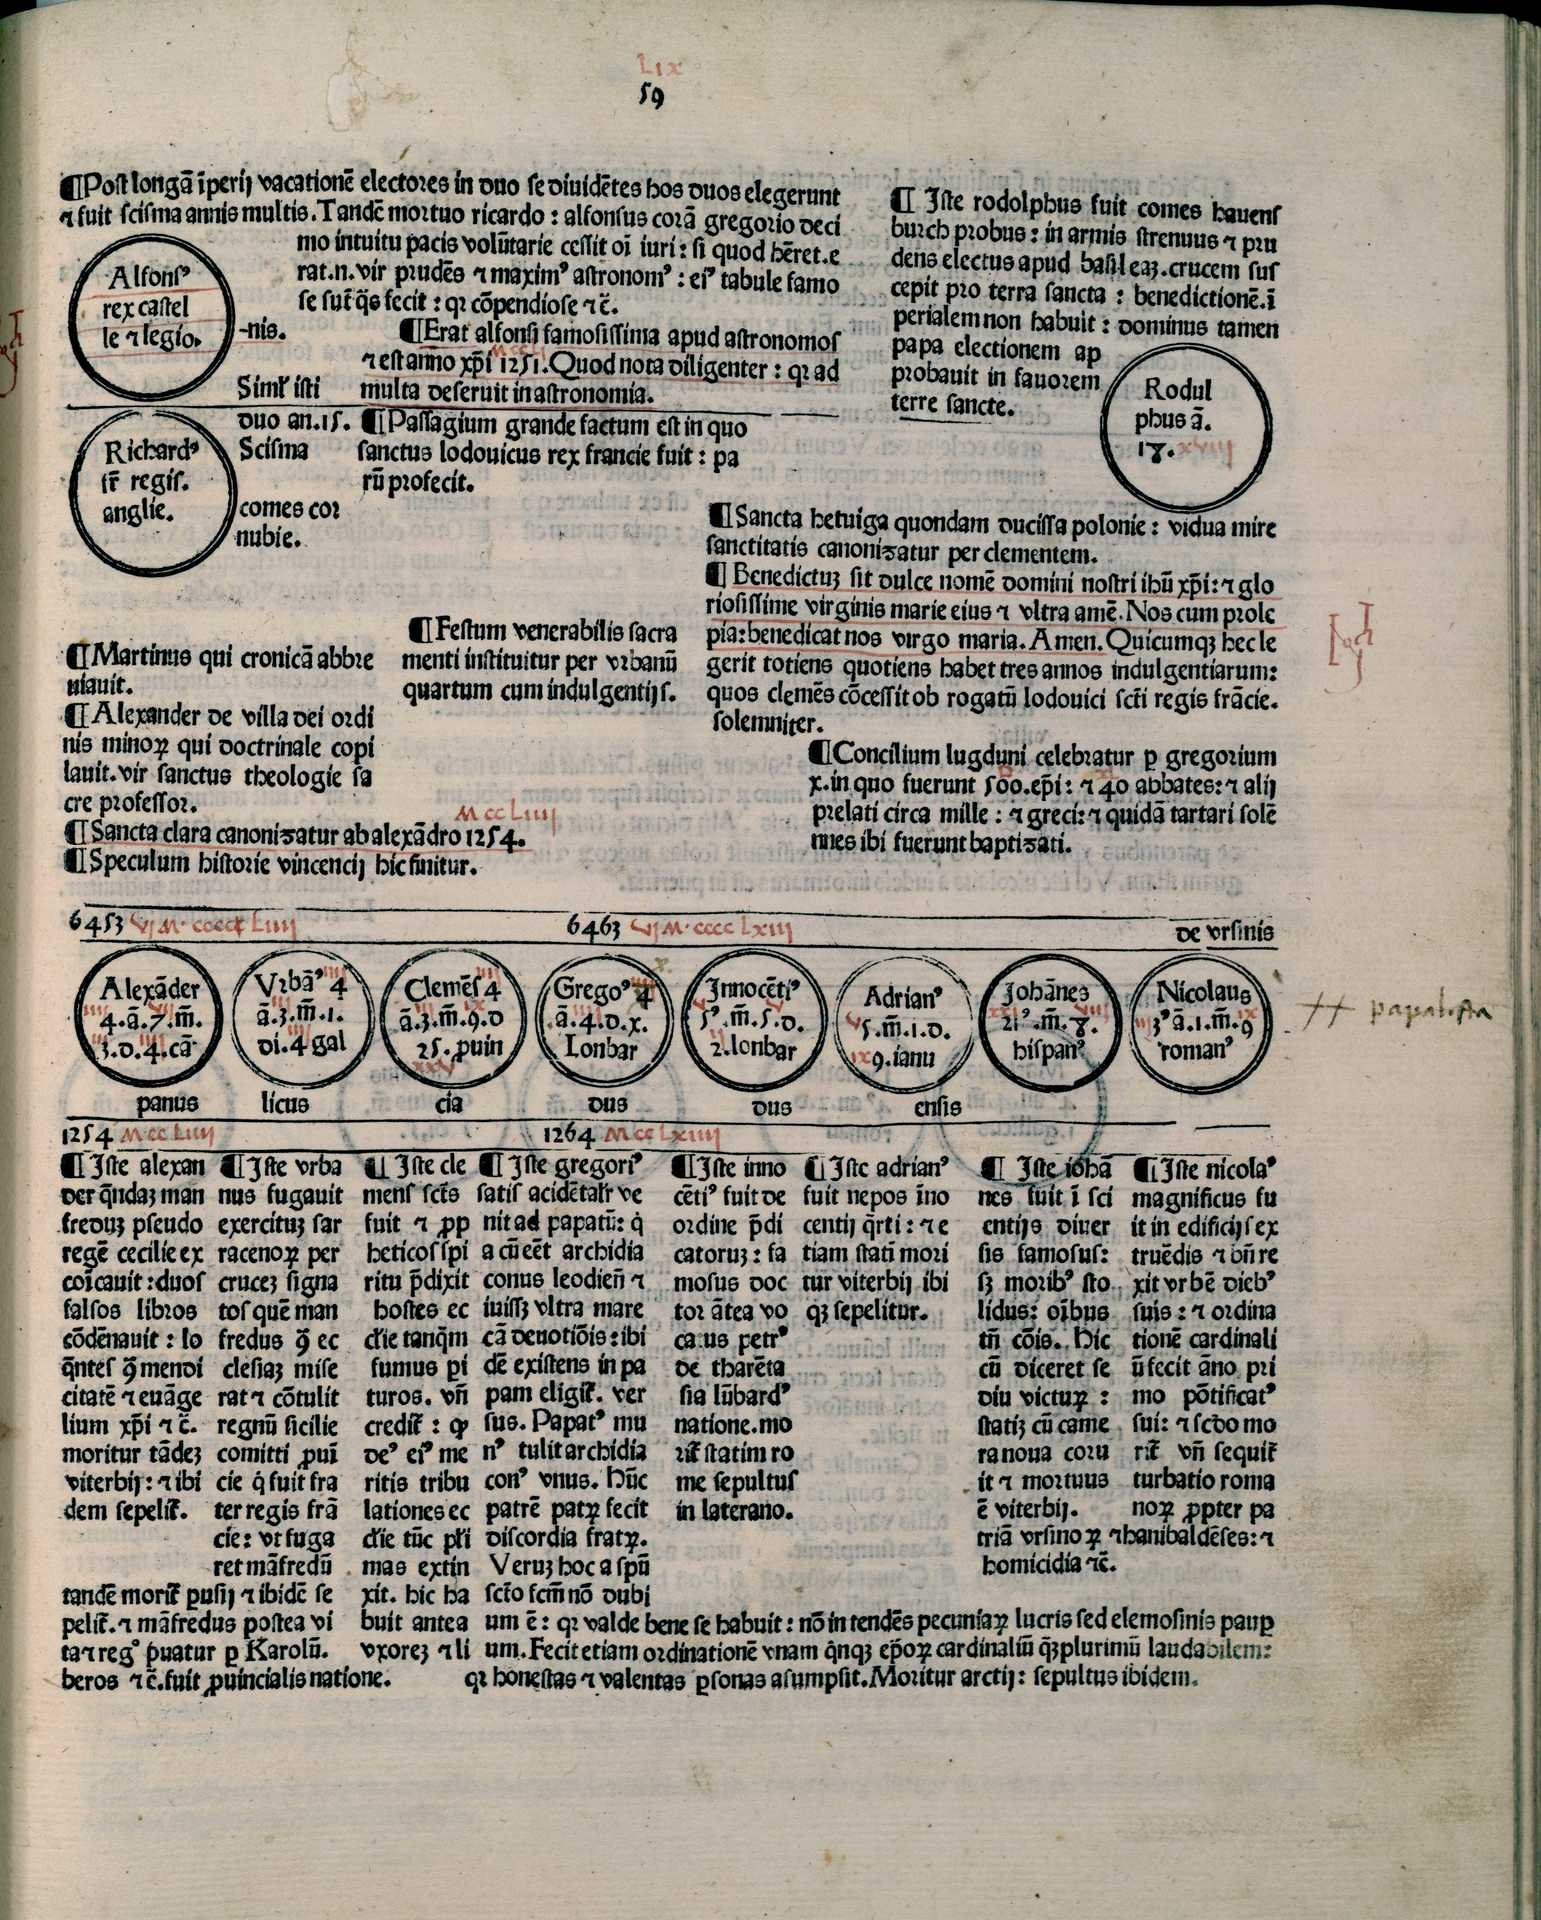 LIX
59
¶Post longā īperij vacationē electores in duo se diuidētes hos duos elegerunt
⁊ fuit scisma annis multis. Tandē mortuo ricardo : alfonsus corā gregorio deci
mo intuitu pacis volūtarie cessit oī iuri : si quod hēret. e
rat .n. vir prudēs ⁊ maximꝰ astronomꝰ : eiꝰ tabule famo
se sūt q̄s fecit : qꝛ cōpendiose ⁊ c̄.
Alfonsꝰ
rex castel
le ⁊ legio
-nis.
¶Erat alfonsi famosissima apud astronomos
⁊ est anno xp̄i 1251. Quod nota diligenter : qꝛ ad
multa deseruit in astronomia.
Simlr̄ isti
duo an. 15.
Scisma
Richardꝰ
fr̄ regis.
anglie.
comes coꝛ
nubie.
¶Passagium grande factum est in quo
sanctus lodouicus rex francie fuit : pa
rū profecit.
¶ Iste rodolphus fuit comes hauens
burch probus : in armis strenuus ⁊ pru
dens electus apud basileaꝫ. crucem sus
cepit pro terra sancta : benedictionē. ī
perialem non habuit : dominus tamen
papa electionem ap
probauit in fauorem
terre sancte.
Rodul
phus ā.
18. xviij
¶Sancta hetuiga quondam ducissa polonie : vidua mire
sanctitatis canonizatur per clementem.
¶ Benedictuꝫ sit dulce nomē domini nostri ihū xp̄i: ⁊ glo
riosissime virginis marie eius ⁊ vltra amē. Nos cum prole
pia: benedicat nos virgo maria. Amen. Quicumqꝫ hec le
gerit totiens quotiens habet tres annos indulgentiarum:
quos clemēs cōcessit ob rogatū lodouici scti regis frācie.
solemniter.
¶Festum venerabilis sacra
menti instituitur per vrbanū
quartum cum indulgentijs.
¶Martinus qui cronicā abbre
uiauit.
¶Alexander de villa dei ordi
nis minoꝝ qui doctrinale copi
lauit. vir sanctus theologie sa
cre professor.
MccLiiij
¶Sancta clara canonizatur ab alexādro 1254.
¶Speculum historie vincencij hic finitur.
¶Concilium lugduni celebratur ꝑ gregorium
x. in quo fuerunt 500. ep̄i : ⁊ 40 abbates: ⁊ alij
prelati circa mille : ⁊ greci: ⁊ quidā tartari solē
nnes ibi fuerunt baptizati.
6453 6463 VIM·cccc Lxiii de vrsinis
Alexāder
4. ā. 7. m̄.
3. d. 4. cā
panus
Vrbāꝰ 4
ā. 3. m̄. 1.
di. 4 gal
licus
Clemēs 4
ā. 3. m̄. 9. d
25. ꝓuin
xxv
cia
Gregoꝰ 4
ā. 4. d. x.
Lonbar
dus
Innocētiꝰ
5ꝰ. m̄. 5. d.
2. lonbar
dus
Adrianꝰ
5. m̄. 1. d.
9. ianu
ensis
Johānes
21ꝰ. m̄. 8.
hispanꝰ
Nicolaus
3ꝰ ā. 1. m̄. 9
romanꝰ
papalista
1254 MccLiiij 1264 MccLxiiij
¶Iste alexan
der q̄ndaꝫ man
freduꝫ pseudo
regē cecilie ex
coīcauit : duos
falsos libros
cōdēnauit : lo
q̄ntes ꝯ̄ mendi
citatē ⁊ euāge
lium xp̄i ⁊ c̄.
moritur tādeꝫ
viterbij: ⁊ ibi
dem sepelit̄.
¶Iste vrba
nus fugauit
exercituꝫ sar
racenoꝝ per
cruceꝫ signa
tos quē man
fredus ꝯ̄ ec
clesiaꝫ mise
rat ⁊ cōtulit
regnū sicilie
comitti ꝓuī
cie q̇ fuit fra
ter regis frā
cie : vt fuga
ret māfredū
tandē morit̄ ꝑusij ⁊ ibidē se
pelit̄. ⁊ māfredus postea vi
ta ⁊ regꝰ p̄uatur ꝑ Karolū.
¶ Iste cle
mens sct̄s
fuit ⁊ ꝓp
heticos spi
ritu p̄dixit
hostes ec
cl̄ie tanq̄m
fumus ꝑi
turos. vn̄
credit̄ : ꝙ
deꝰ eiꝰ me
ritis tribu
lationes ec
cl̄ie tūc pl̄i
mas extin
xit. hic ha
buit antea
vxoreꝫ ⁊ li
beros ⁊ c̄. fuit ꝓuincialis natione.
¶ Iste gregoriꝰ
satis acidētalr̄ ve
nit ad papatū: q̇
a cū eēt archidia
conus leodien̄ ⁊
iuissꝫ vltra mare
cā deuotiōis : ibi
dē existens in pa
pam eligit̄. ver
sus. Papatꝰ mu
nꝰ tulit archidia
conꝰ vnus. Hūc
patrē patꝝ fecit
discordia fratꝝ.
Veruꝫ hoc a spū
sct̄o fcm̄ nō dubi
um ē : qꝛ valde bene se habuit : nō in tendēs pecuniaꝝ lucris sed elemosinis pauꝑ
um. Fecit etiam ordinationē vnam q̇nqꝫ ep̄oꝝ cardinaliū qꝫ plurimū laudabilem:
qꝛ honestas ⁊ valentas ꝑsonas asumpsit. Moritur arctij : sepultus ibidem.
¶Iste inno
cētiꝰ fuit de
ordine p̄di
catoruꝫ : fa
mosus doc
tor ātea vo
ca us petrꝰ
de tharēta
sia lūbardꝰ
natione. mo
rit̄ statim ro
me sepultus
in laterano.
¶Iste adrianꝰ
fuit nepos īno
centij q̄rti : ⁊ e
tiam statī mori
tur viterbij ibi
qꝫ sepelitur.
¶ Iste iohā
nes fuit ī sci
entijs diuer
sis famosus:
sꝫ moribꝰ sto
lidus: oībus
tn̄ cōis. Hic
cū diceret se
diu victuꝝ :
statiꝫ cū came
ra noua corru
it ⁊ mortuus
ē viterbij.
¶Iste nicolaꝰ
magnificus fu
it in edificijs ex
truēdis ⁊ bn̄ re
xit vrbē diebꝰ
suis : ⁊ ordina
tionē cardinali
ū fecit āno pri
mo pōtificatꝰ
sui: ⁊ scd̄o mo
rit̄ vn̄ sequit̄
turbatio roma
noꝝ ꝓpter pa
triā vrsinoꝝ ⁊ hanibaldēses : ⁊
homicidia ⁊c̄.